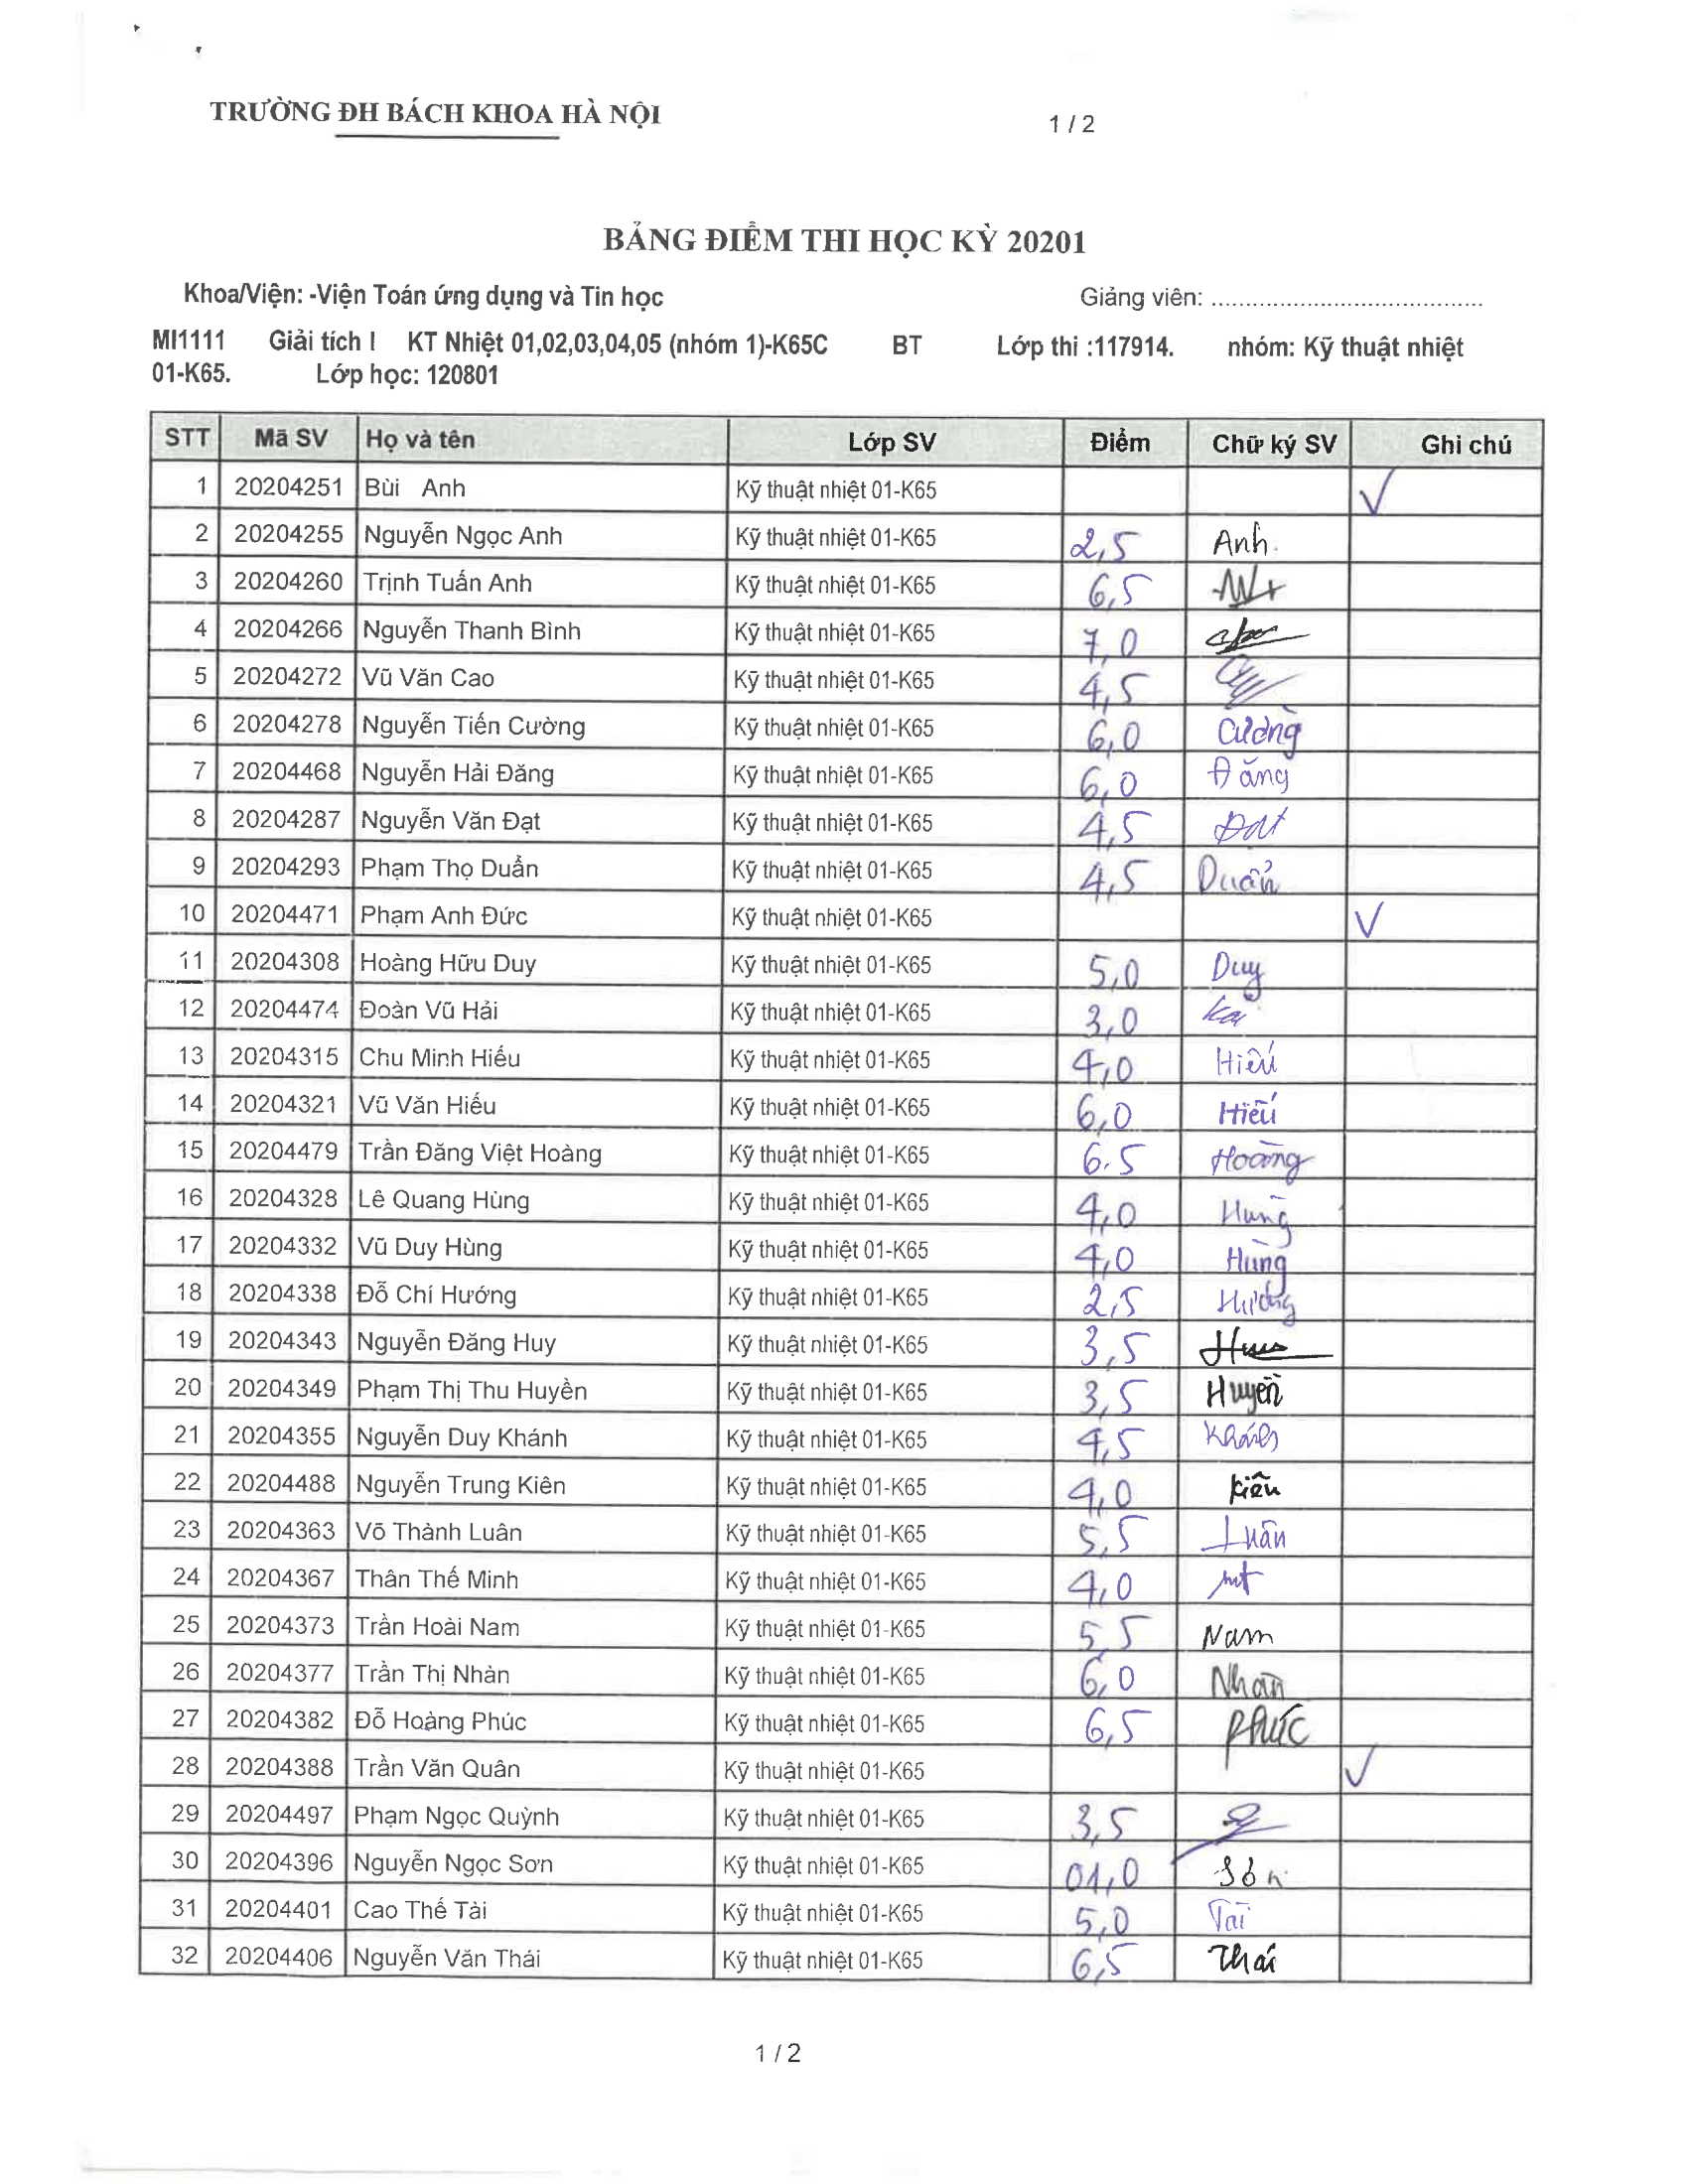 TRƯỜNG ĐH BÁCH KHOA HÀ NỘI 1 / 2
BẢNG ĐIỂM THI HỌC KỲ 20201
Khoa/Viện: -Viện Toán ứng dụng và Tin học Giảng viên: .......................................
MI1111 Giải tích I KT Nhiệt 01,02,03,04,05 (nhóm 1)-K65C BT Lớp thi :117914. nhóm: Kỹ thuật nhiệt
01-K65. Lớp học: 120801
STT Mã SV Họ và tên Lớp SV Điểm Chữ ký SV Ghi chú
1 20204251 Bùi Anh Kỹ thuật nhiệt 01-K65 ✓
2 20204255 Nguyễn Ngọc Anh Kỹ thuật nhiệt 01-K65 2,5 Anh
3 20204260 Trịnh Tuấn Anh Kỹ thuật nhiệt 01-K65 6,5
4 20204266 Nguyễn Thanh Bình Kỹ thuật nhiệt 01-K65 7,0
5 20204272 Vũ Văn Cao Kỹ thuật nhiệt 01-K65 4,5
6 20204278 Nguyễn Tiến Cường Kỹ thuật nhiệt 01-K65 6,0 Cường
7 20204468 Nguyễn Hải Đăng Kỹ thuật nhiệt 01-K65 6,0 Đăng
8 20204287 Nguyễn Văn Đạt Kỹ thuật nhiệt 01-K65 4,5 Đạt
9 20204293 Phạm Thọ Duẩn Kỹ thuật nhiệt 01-K65 4,5 Duẩn
10 20204471 Phạm Anh Đức Kỹ thuật nhiệt 01-K65 ✓
11 20204308 Hoàng Hữu Duy Kỹ thuật nhiệt 01-K65 5,0 Duy
12 20204474 Đoàn Vũ Hải Kỹ thuật nhiệt 01-K65 3,0
13 20204315 Chu Minh Hiếu Kỹ thuật nhiệt 01-K65 4,0 Hiếu
14 20204321 Vũ Văn Hiếu Kỹ thuật nhiệt 01-K65 6,0 Hiếu
15 20204479 Trần Đăng Việt Hoàng Kỹ thuật nhiệt 01-K65 6.5 Hoàng
16 20204328 Lê Quang Hùng Kỹ thuật nhiệt 01-K65 4,0 Hùng
17 20204332 Vũ Duy Hùng Kỹ thuật nhiệt 01-K65 4,0 Hùng
18 20204338 Đỗ Chí Hướng Kỹ thuật nhiệt 01-K65 2,5 Hướng
19 20204343 Nguyễn Đăng Huy Kỹ thuật nhiệt 01-K65 3,5
20 20204349 Phạm Thị Thu Huyền Kỹ thuật nhiệt 01-K65 3,5 Huyền
21 20204355 Nguyễn Duy Khánh Kỹ thuật nhiệt 01-K65 4,5 Khánh
22 20204488 Nguyễn Trung Kiên Kỹ thuật nhiệt 01-K65 4,0 Kiên
23 20204363 Võ Thành Luân Kỹ thuật nhiệt 01-K65 5,5 Luân
24 20204367 Thân Thế Minh Kỹ thuật nhiệt 01-K65 4,0
25 20204373 Trần Hoài Nam Kỹ thuật nhiệt 01-K65 5,5 Nam
26 20204377 Trần Thị Nhàn Kỹ thuật nhiệt 01-K65 6,0 Nhàn
27 20204382 Đỗ Hoàng Phúc Kỹ thuật nhiệt 01-K65 6,5 Phúc
28 20204388 Trần Văn Quân Kỹ thuật nhiệt 01-K65 ✓
29 20204497 Phạm Ngọc Quỳnh Kỹ thuật nhiệt 01-K65 3,5
30 20204396 Nguyễn Ngọc Sơn Kỹ thuật nhiệt 01-K65 01,0 Sơn
31 20204401 Cao Thế Tài Kỹ thuật nhiệt 01-K65 5,0 Tài
32 20204406 Nguyễn Văn Thái Kỹ thuật nhiệt 01-K65 6,5 Thái
1 / 2